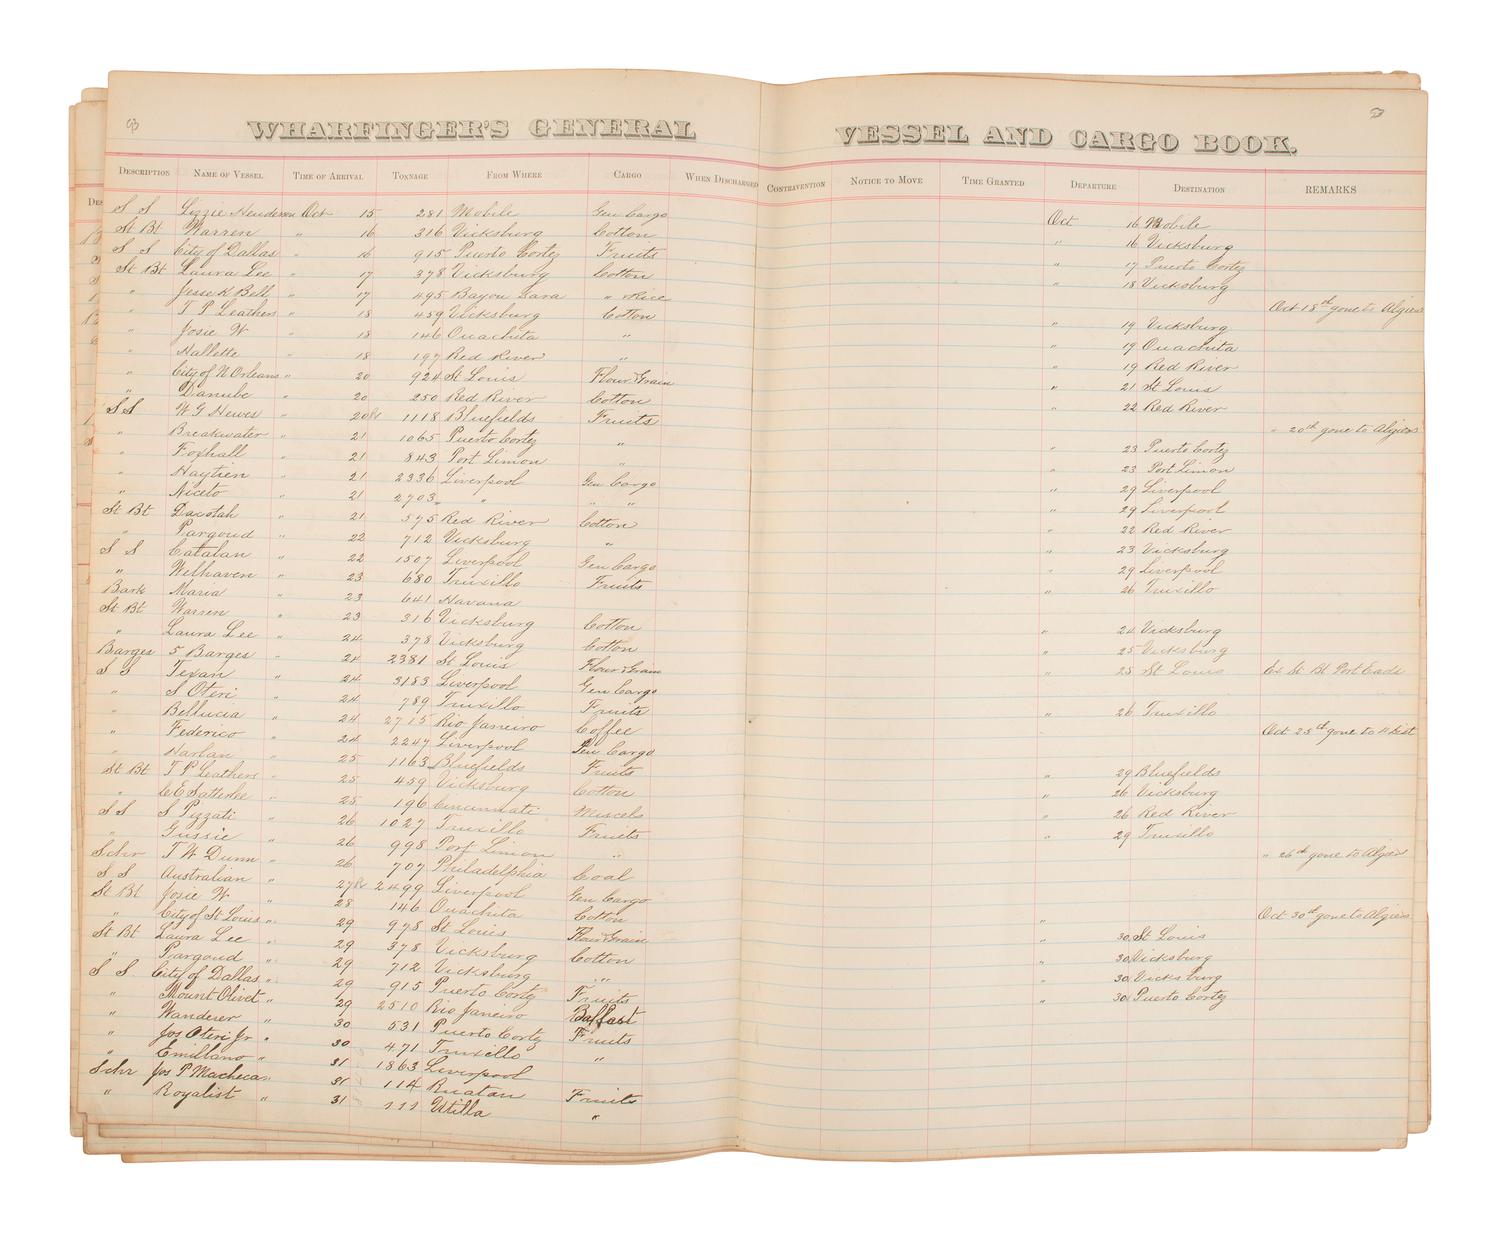 83
WHARFINGER'S GENERAL VESSEL AND CARGO BOOK.
DESCRIPTION NAME OF VESSEL TIME OF ARRIVAL TONNAGE FROM WHERE CARGO WHEN DISCHARGED CONTRAVENTION NOTICE TO MOVE TIME GRANTED DEPARTURE DESTINATION REMARKS
S S Lizzie Henderson Oct 15 281 Mobile Gen Cargo Oct 16 Mobile
St Bt Warren " 16 316 Vicksburg Cotton " 16 Vicksburg
S S City of Dallas " 16 915 Puerto Cortez Fruits " 17 Puerto Cortez
St Bt Laura Lee " 17 378 Vicksburg Cotton " 18 Vicksburg
" Jesse K Bell " 17 495 Bayou Sara " Rice Oct 18th gone to Algiers
" T P Leathers " 18 459 Vicksburg Cotton " 19 Vicksburg
" Josie W " 18 146 Ouachita " " 19 Ouachita
" Hallette " 18 197 Red River " 19 Red River
" City of N Orleans " 20 924 St Louis Flour & Grain " 21 St Louis
" Danube " 20 250 Red River Cotton " 22 Red River
S S W G Hewes " 20 1118 Bluefields Fruits " 20th gone to Algiers
" Breakwater " 21 1065 Puerto Cortez " " 23 Puerto Cortez
" Foxhall " 21 843 Port Limon " " 23 Port Limon
" Haytien " 21 2336 Liverpool Gen Cargo " 29 Liverpool
" Niceto " 21 2703 " " " 29 Liverpool
St Bt Dacotah " 21 575 Red River Cotton " 22 Red River
" Pargoud " 22 712 Vicksburg " " 23 Vicksburg
S S Catalan " 22 1507 Liverpool Gen Cargo " 29 Liverpool
" Welhaven " 23 680 Truxillo Fruits " 26 Truxillo
Bark Maria " 23 641 Havana
St Bt Warren " 23 316 Vicksburg Cotton " 24 Vicksburg
" Laura Lee " 24 378 Vicksburg Cotton 25 Vicksburg
Barges 5 Barges " 24 2381 St Louis Flour & Grain " 25 St Louis Ex St Bt Port Eads
S S Texan " 24 3183 Liverpool Gen Cargo
" S Oteri " 24 789 Truxillo Fruits " 26 Truxillo
" Bellucia " 24 2715 Rio Janeiro Coffee Oct 25th gone to 4 Dist
" Federico " 24 2247 Liverpool Gen Cargo
" Harlan " 25 1163 Bluefields Fruits " 29 Bluefields
St Bt T P Leathers " 25 459 Vicksburg Cotton " 26 Vicksburg
" C E Satterlee " 25 196 Cincinnati Muscels " 26 Red River
S S S Pizzati " 26 1027 Truxillo Fruits " 29 Truxillo
" Gussie " 26 998 Port Limon " " 26th gone to Algiers
Schr T W Dunn " 26 707 Philadelphia Coal
S S Australian " 27 2499 Liverpool Gen Cargo
St Bt Josie W " 28 146 Ouachita Cotton Oct 30th gone to Algiers
" City of St Louis " 29 978 St Louis Flour & Grain " 30 St Louis
St Bt Laura Lee " 29 378 Vicksburg Cotton " 30 Vicksburg
" Pargoud " 29 712 Vicksburg " " 30 Vicksburg
S S City of Dallas " 29 915 Puerto Cortez Fruits " 30 Puerto Cortez
" Mount Olivet " 29 2510 Rio Janeiro Ballast
" Wanderer " 30 531 Puerto Cortez Fruits
" Jos Oteri Jr " 30 471 Truxillo "
" Emiliano " 31 1863 Liverpool
Schr Jos P Macheca " 31 114 Ruatan Fruits
" Royalist " 31 111 Utilla "